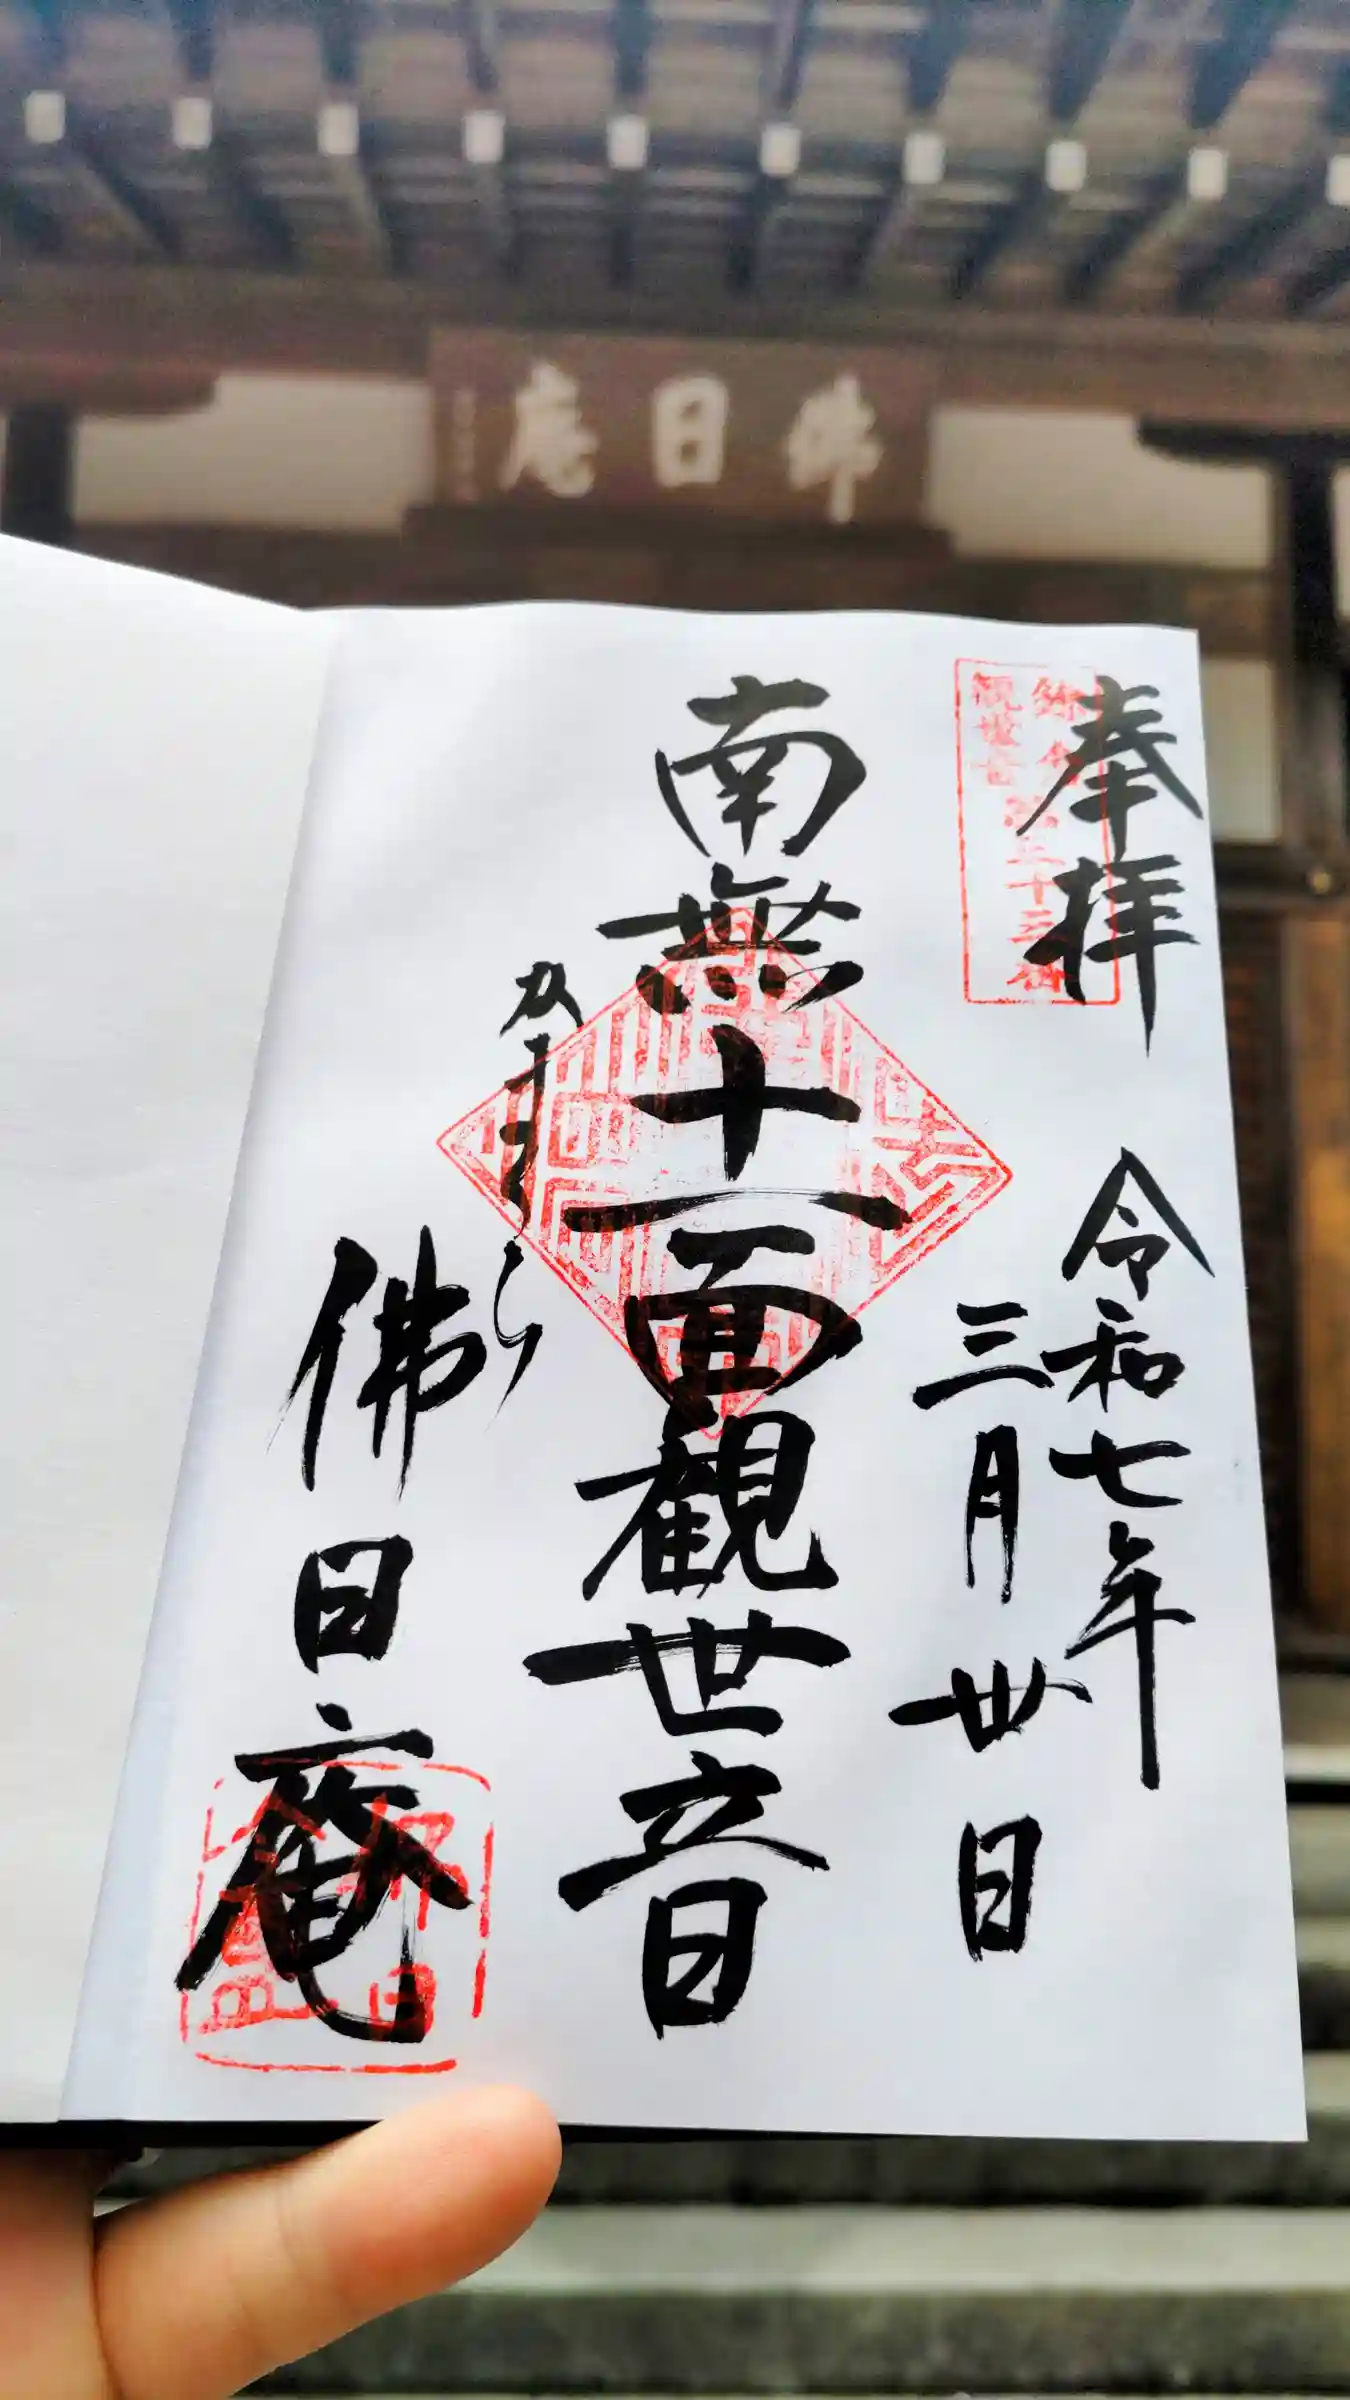 佛日庵
奉拝
令和七年
三月卅日
南無十一面観世音
かまくら
佛日庵
鎌倉
三十三
観世音